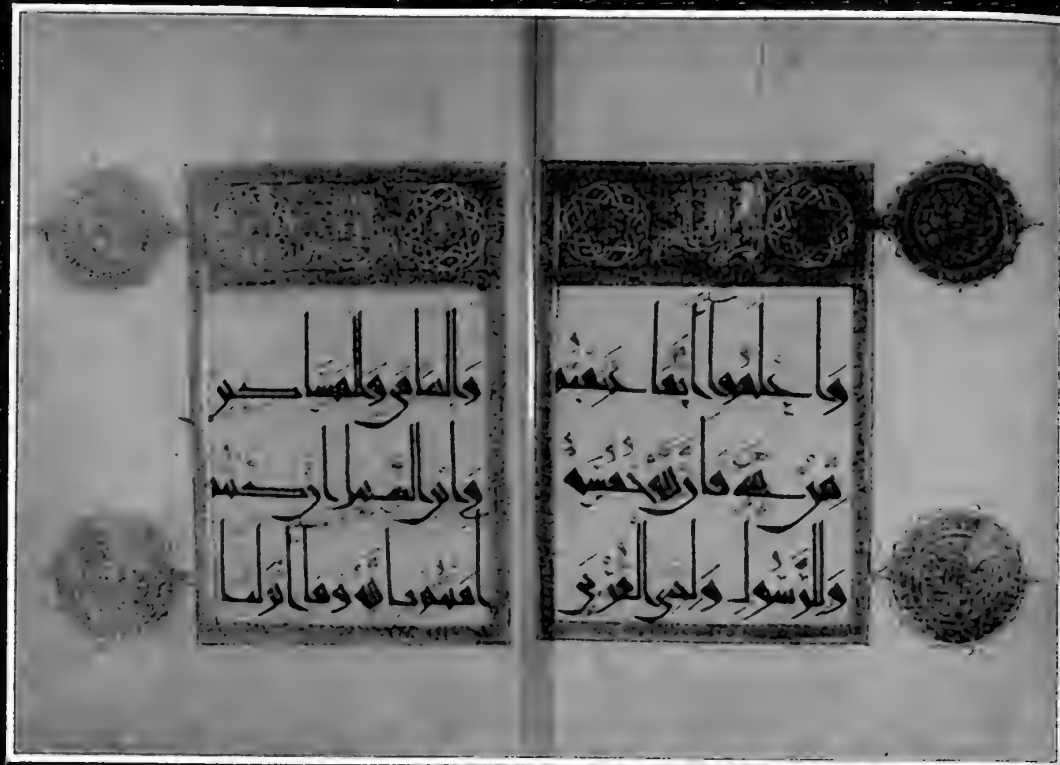 واعلموا أنما غنمتم
من شىء فأن لله خمسه
وللرسول ولذى القربى
واليتامى والمساكين
وابن السبيل إن كنتم
آمنتم بالله وما أنزلنا